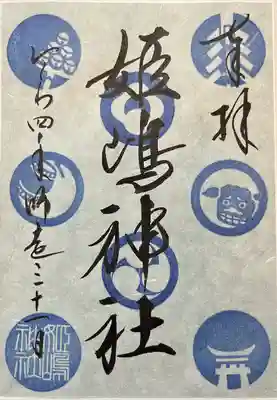 奉拝
姫嶋神社
令和四年師走二十一日
姫嶋
神社